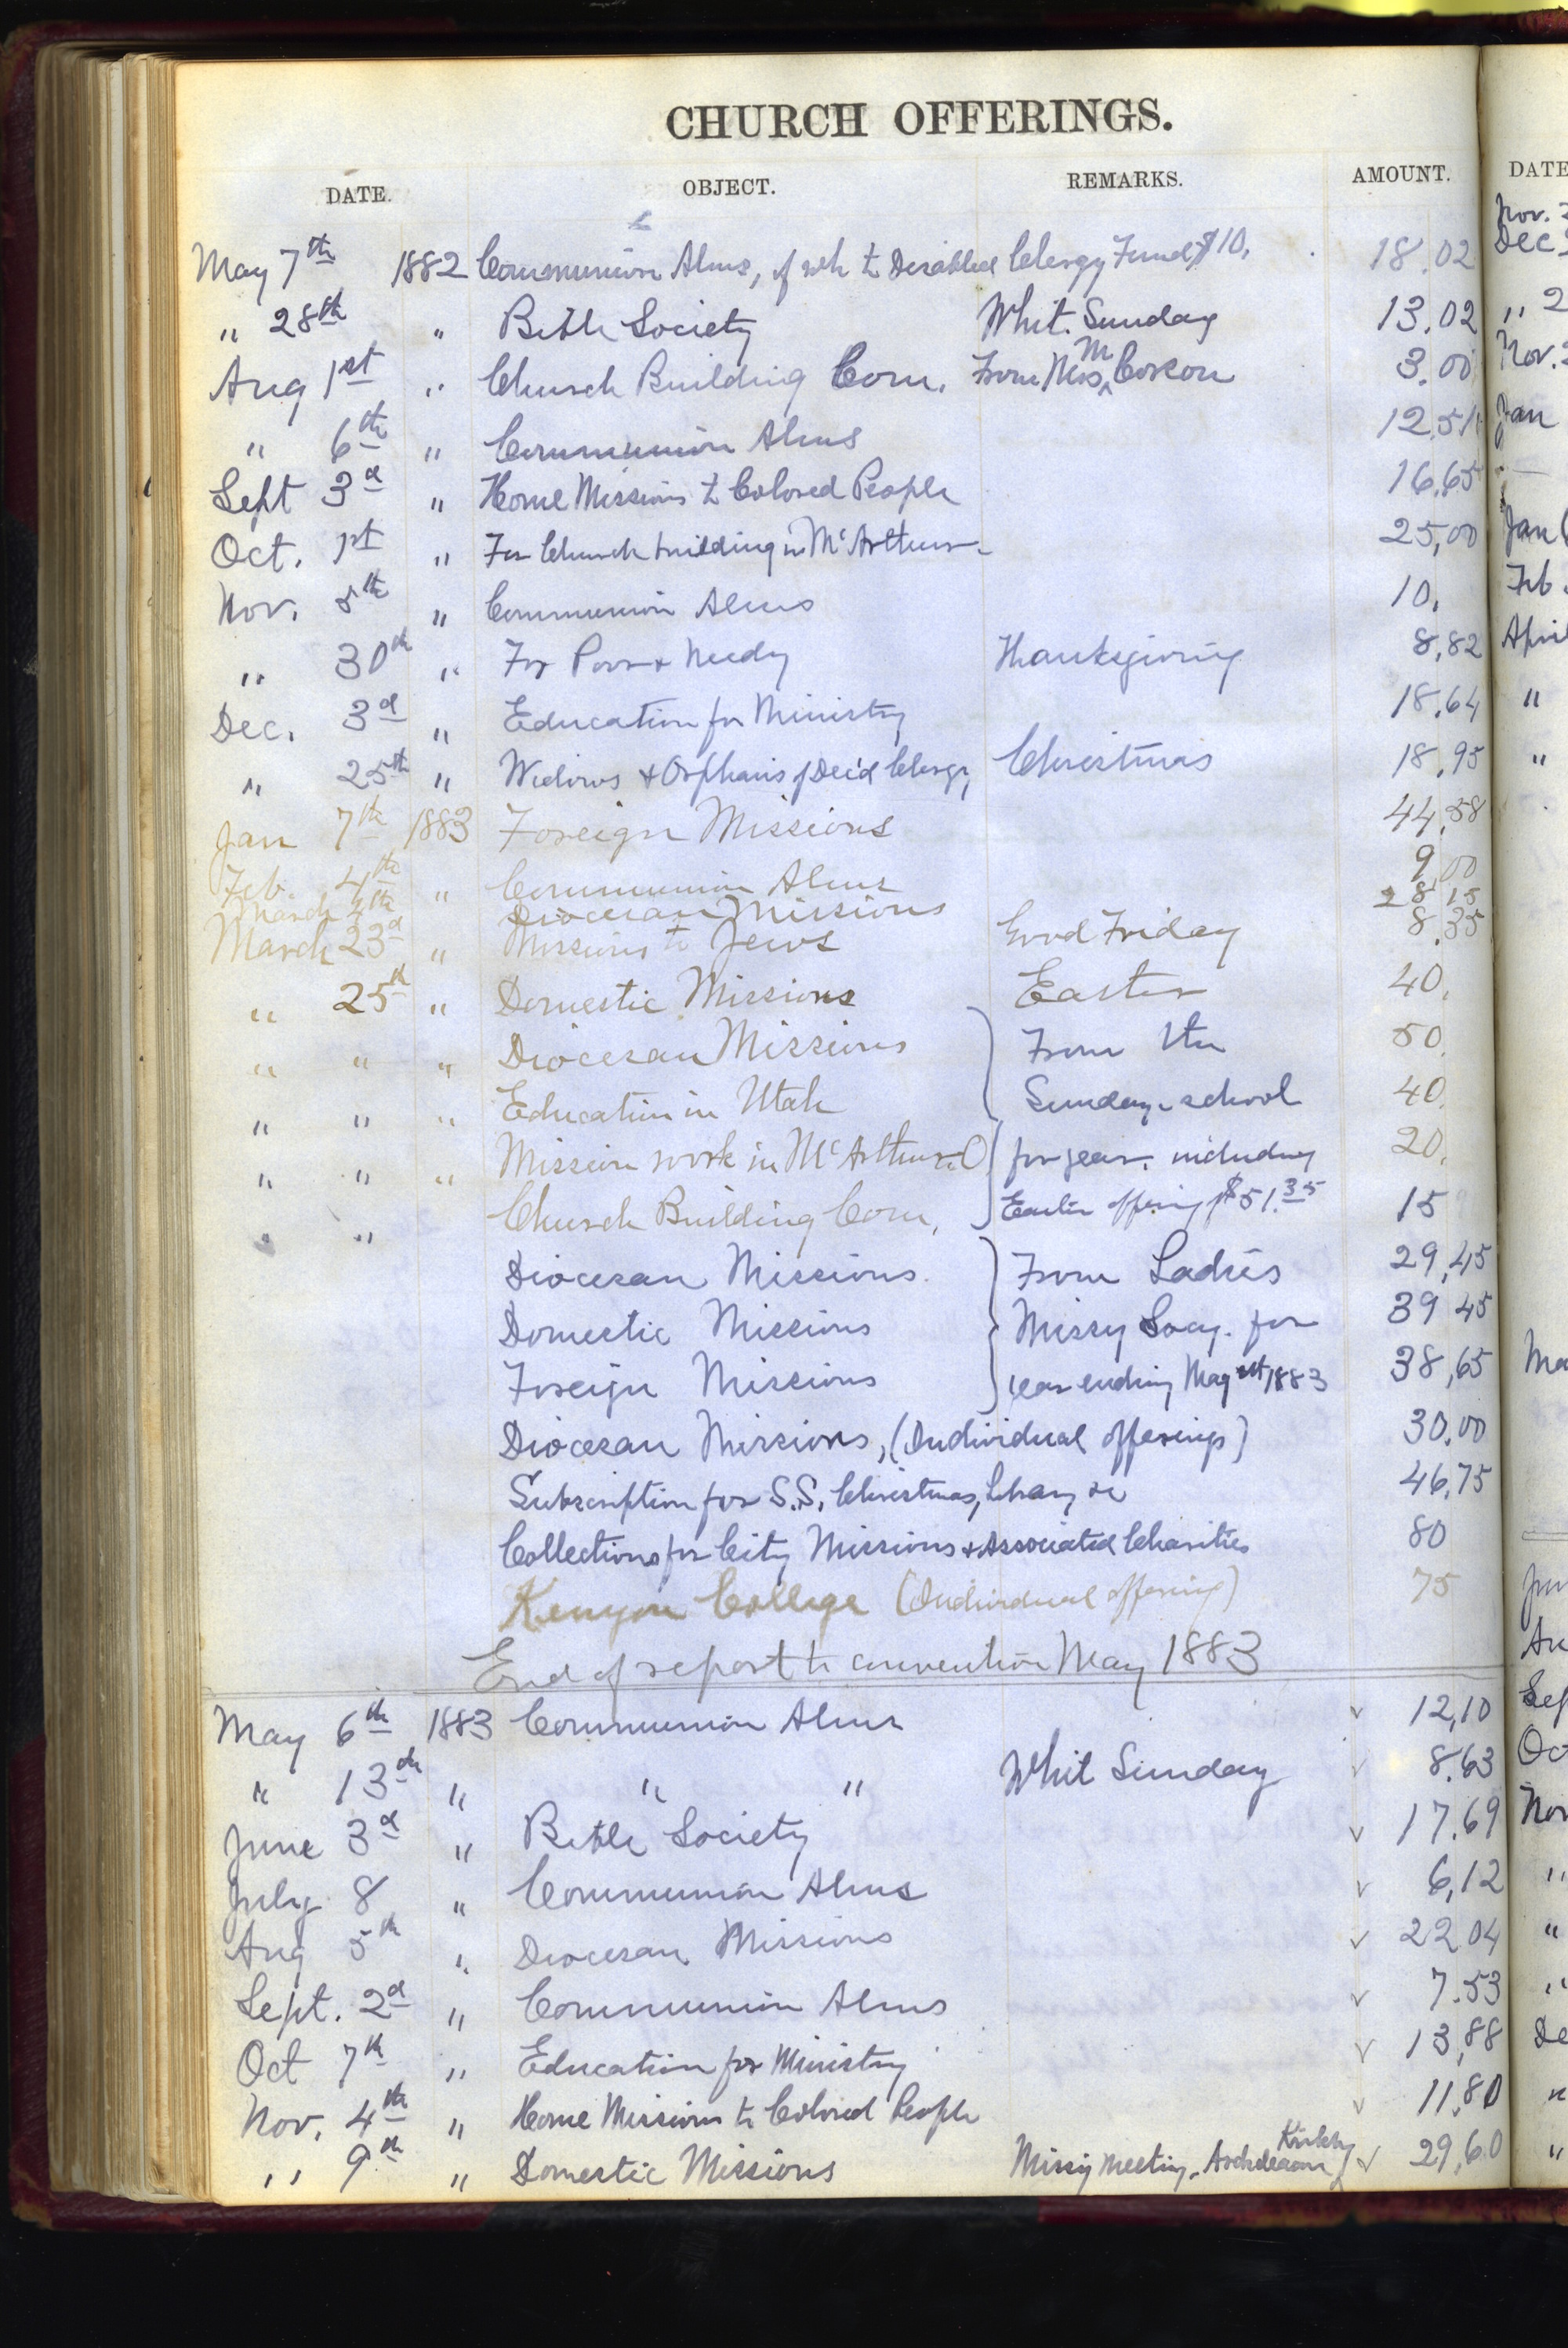 CHURCH OFFERINGS.
DATE. OBJECT. REMARKS. AMOUNT. DATE
May 7th 1882 Communion Alms, of wh to Disabled Clergy Fund $10. 18.02
" 28th " Bible Society Whit. Sunday 13.02
Aug 1st " Church Building Com. From Mrs M 3.00
" 6th " Communion Alms 12.51
Sept 3d " Home Missions to Colored People 16.65
Oct. 1st " For Church building in McArthur 25,00
Nov. 5th " Communion Alms 10.
" 30th " For Poor & Needy Thanksgiving 8,82
Dec. 3d " Education for Ministry 18.64
" 25th " Widows & Orphans of Dec'd Clergy Christmas 18.95
Jan 7th 1883 Foreign Missions 44.58
Feb. 4th " Communion Alms 9.00
March 4th Diocesan Missions 28 15
March 23d " Missions to Jews Good Friday 8.35
" 25th " Domestic Missions Easter 40.
" " " Diocesan Missions From the 50.
" " " Education in Utah Sunday-school 40.
" " " Mission work in McArthur O for year, including 20.
" " Church Building Com, Easter offering $51.35 15
Diocesan Missions. From Ladies 29,45
Domestic Missions Missy Socy. for 39 45
Foreign Missions year ending May 1st 1883 38,65
Diocesan Missions, (Individual offerings) 30.00
Subscription for S.S. Christmas, Library &c 46,75
Collections for City Missions & Associated Charities 80
Kenyon College (Individual offering) 75
End of report to convention May 1883
May 6th 1883 Communion Alms 12,10
" 13th " " " Whit Sunday 8.63
June 3d " Bible Society 17.69
July 8 " Communion Alms 6,12
Aug 5th " Diocesan Missions 22 04
Sept. 2d " Communion Alms 7.53
Oct 7th " Education for Ministry 13,88
Nov. 4th " Home Missions to Colored People 11,80
" 9th " Domestic Missions Missy meeting, Archdeacon Kirkby 29,60